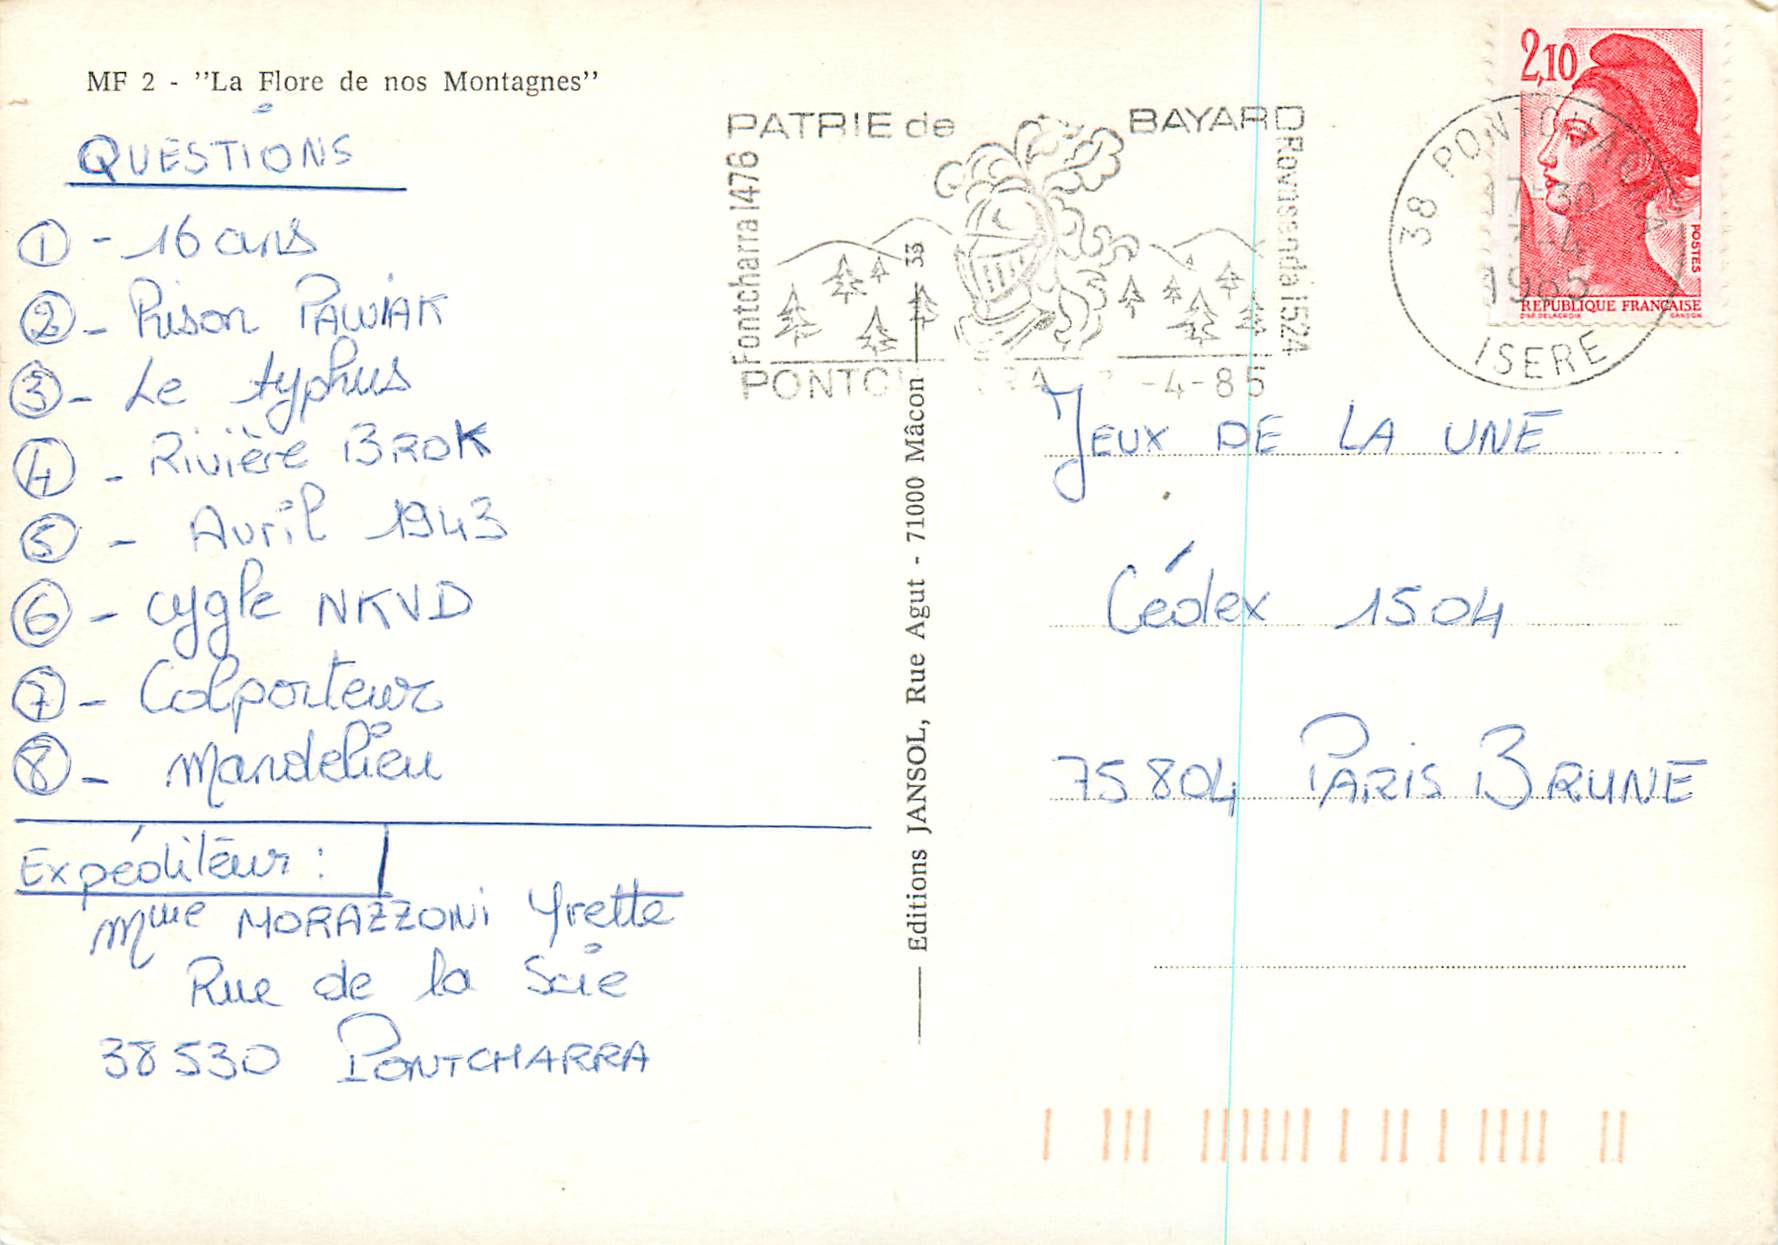 MF 2 - ''La Flore de nos Montagnes''
QUESTIONS
① - 16 ans
② - Prison PAWIAK
③ - Le typhus
④ - Rivière BROK
⑤ - Avril 1943
⑥ - cygle NKVD
⑦ - Colporteur
⑧ - Mandelieu
Expéditeur :
Mme MORAZZONI Yvette
Rue de la Scie
38530 PONTCHARRA
Editions JANSOL, Rue Agut - 71000 Mâcon
33
PATRIE de BAYARD
Fontcharra 1476
Rovisenda 1524
-4-85
38 PONTCHARRA
17-30
-4
1985
ISERE
2,10
POSTES
REPUBLIQUE FRANÇAISE
D'AP. DELACROIX GANDON
JEUX DE LA UNE
Cédex 1504
75804 PARIS BRUNE